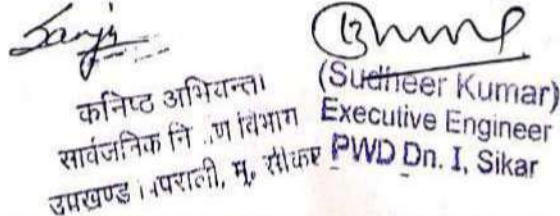 Sanju
कनिष्ठ अभियन्ता
सार्वजनिक नि ..ण विभाग
उपखण्ड । .पराली, मु. सीकर
(Sudheer Kumar)
Executive Engineer
PWD Dn. I, Sikar